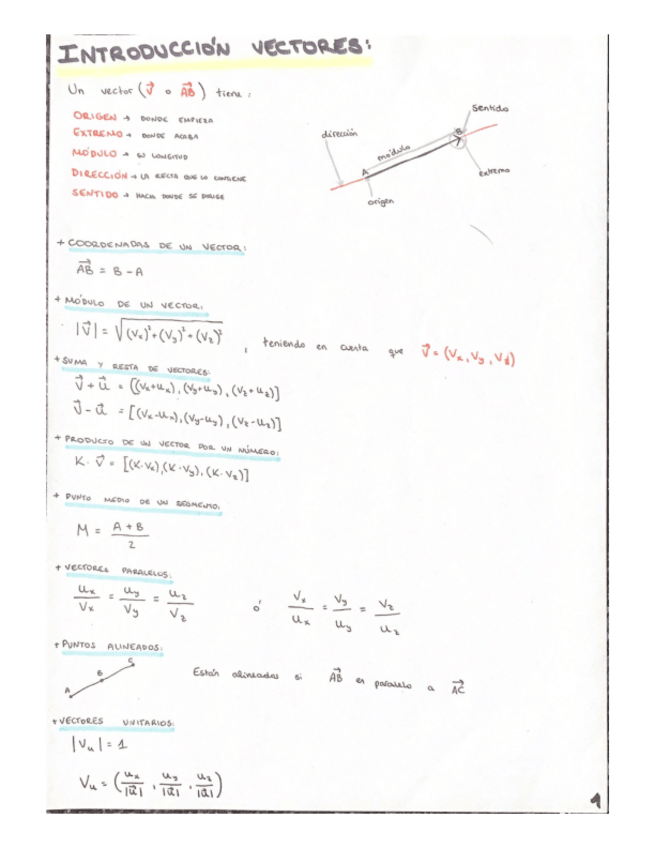 INTRODUCCIÓN VECTORES:
Un vector (V⃗ o AB⃗) tiene:
ORIGEN → DONDE EMPIEZA
EXTREMO → DONDE ACABA
MÓDULO → SU LONGITUD
DIRECCIÓN → LA RECTA QUE LO CONTIENE
SENTIDO → HACIA DONDE SE DIRIGE
Sentido
dirección
B
módulo
A
extremo
origen
+ COORDENADAS DE UN VECTOR:
AB⃗ = B - A
+ MÓDULO DE UN VECTOR:
|V⃗| = √(Vx)²+(Vy)²+(Vz)² , teniendo en cuenta que V⃗ = (Vx, Vy, Vz)
+ SUMA Y RESTA DE VECTORES:
V⃗ + u⃗ = [(Vx+ux), (Vy+uy), (Vz+uz)]
V⃗ - u⃗ = [(Vx-ux), (Vy-uy), (Vz-uz)]
+ PRODUCTO DE UN VECTOR POR UN NÚMERO:
K · V⃗ = [(K·Vx),(K·Vy),(K·Vz)]
+ PUNTO MEDIO DE UN SEGMENTO:
M = A + B / 2
+ VECTORES PARALELOS:
ux/Vx = uy/Vy = uz/Vz ó Vx/ux = Vy/uy = Vz/uz
+ PUNTOS ALINEADOS:
A B C
Están alineados si AB⃗ es paralelo a AC⃗
+ VECTORES UNITARIOS:
|Vu| = 1
Vu = (ux/|u⃗| , uy/|u⃗| , uz/|u⃗|)
1